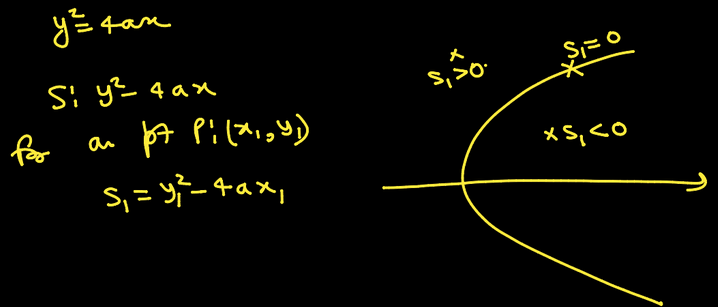 y² = 4ax
S: y² - 4ax
for an pt P: (x₁, y₁)
S₁ = y₁² - 4ax₁
S₁ > 0
S₁ = 0
x S₁ < 0